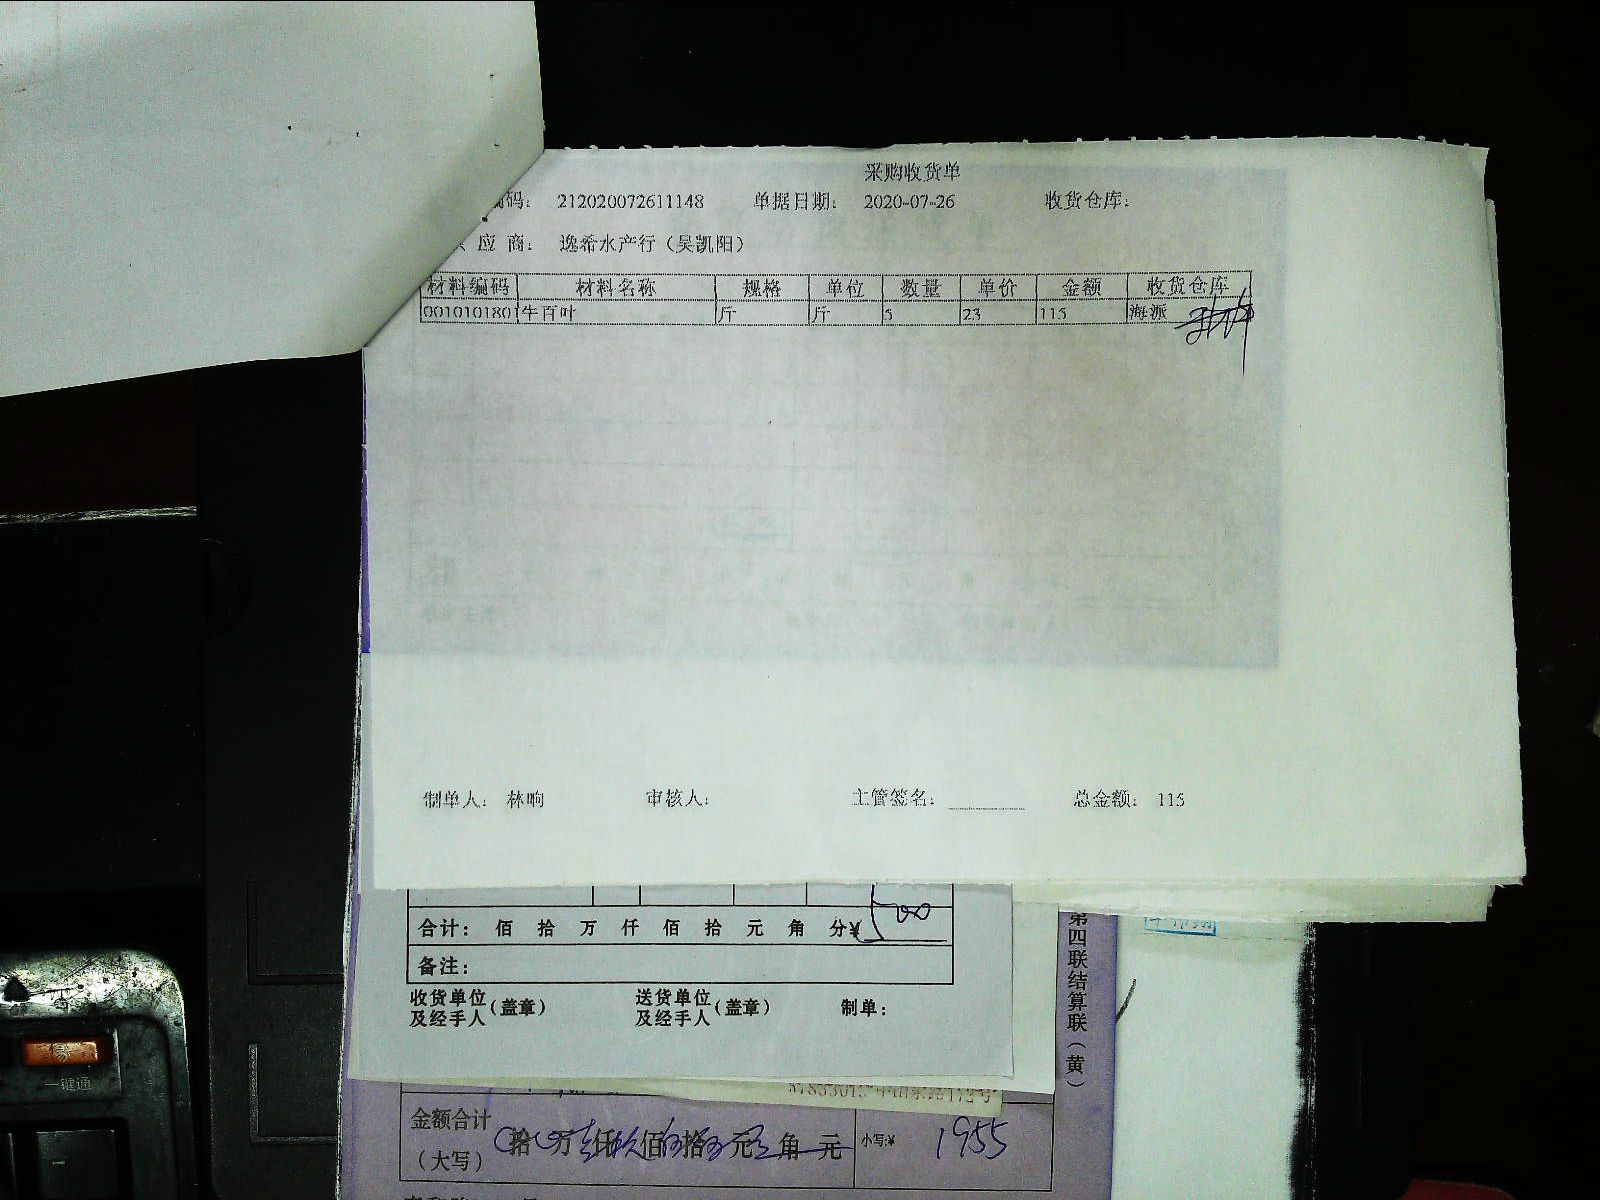 采购收货单
码： 212020072611148 单据日期： 2020-07-26 收货仓库：
应 商： 逸希水产行（吴凯阳）
材料编码 材料名称 规格 单位 数量 单价 金额 收货仓库
001010180 牛百叶 斤 斤 5 23 115 海派
制单人： 林响 审核人： 主管签名： 总金额： 115
合计： 佰 拾 万 仟 佰 拾 元 角 分¥ 500
备注：
收货单位及经手人（盖章） 送货单位及经手人（盖章） 制单：
第四联结算联（黄）
金额合计（大写） 拾 万 仟 佰 拾 元 角 元 小写:¥ 1955
一键通